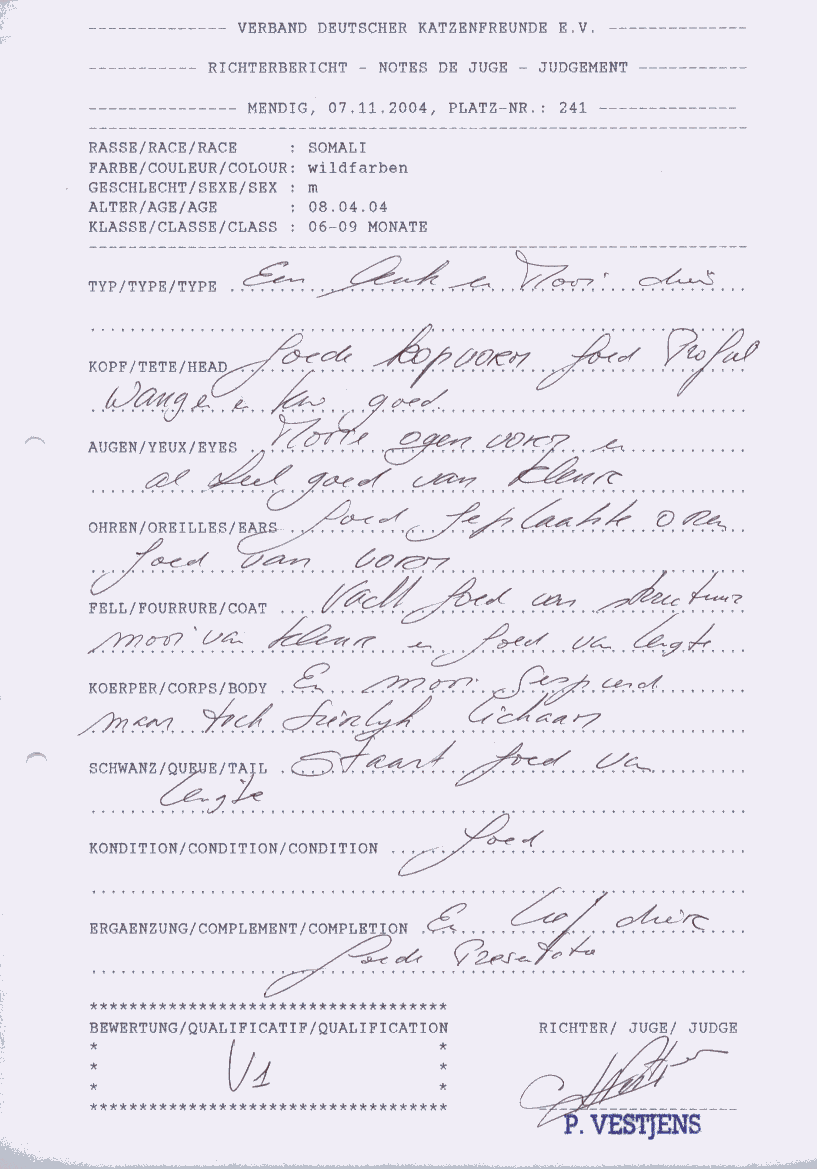 ------------- VERBAND DEUTSCHER KATZENFREUNDE E.V. -------------
---------- RICHTERBERICHT - NOTES DE JUGE - JUDGEMENT ----------
-------------- MENDIG, 07.11.2004, PLATZ-NR.: 241 -------------
RASSE/RACE/RACE : SOMALI
FARBE/COULEUR/COLOUR: wildfarben
GESCHLECHT/SEXE/SEX : m
ALTER/AGE/AGE : 08.04.04
KLASSE/CLASSE/CLASS : 06-09 MONATE
TYP/TYPE/TYPE Een leuk en Mooi dier
KOPF/TETE/HEAD Goede kopvorm goed Profiel
Wangen en kin goed
AUGEN/YEUX/EYES Mooie ogen vorm en
al heel goed van kleur
OHREN/OREILLES/EARS Goed geplaatste oren
goed van vorm
FELL/FOURRURE/COAT Vacht goed van structuur
mooi van kleur en goed van lengte
KOERPER/CORPS/BODY En mooi gespierd
maar toch sierlijk lichaam
SCHWANZ/QUEUE/TAIL Staart goed van
lengte
KONDITION/CONDITION/CONDITION goed
ERGAENZUNG/COMPLEMENT/COMPLETION En lief dier
goede Presentatie
**********************************
BEWERTUNG/QUALIFICATIF/QUALIFICATION RICHTER/ JUGE/ JUDGE
* V1 *
**********************************
P. VESTJENS